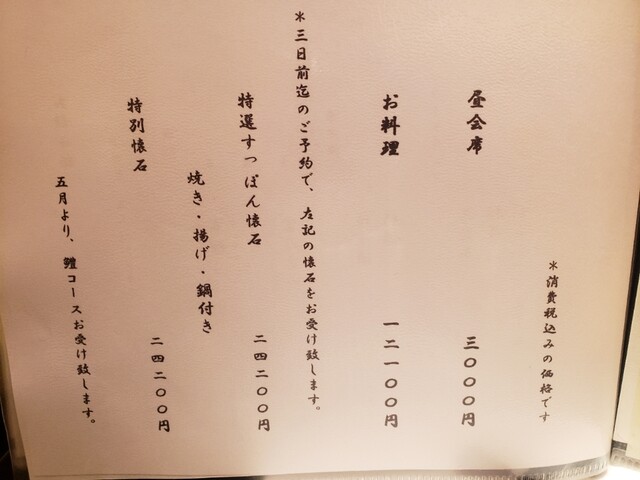 ＊消費税込みの価格です
昼会席 三〇〇〇円
お料理 一二一〇〇円
＊三日前迄のご予約で、左記の懐石をお受け致します。
特選すっぽん懐石 二四二〇〇円
焼き・揚げ・鍋付き
特別懐石 二四二〇〇円
五月より、鱧コースお受け致します。